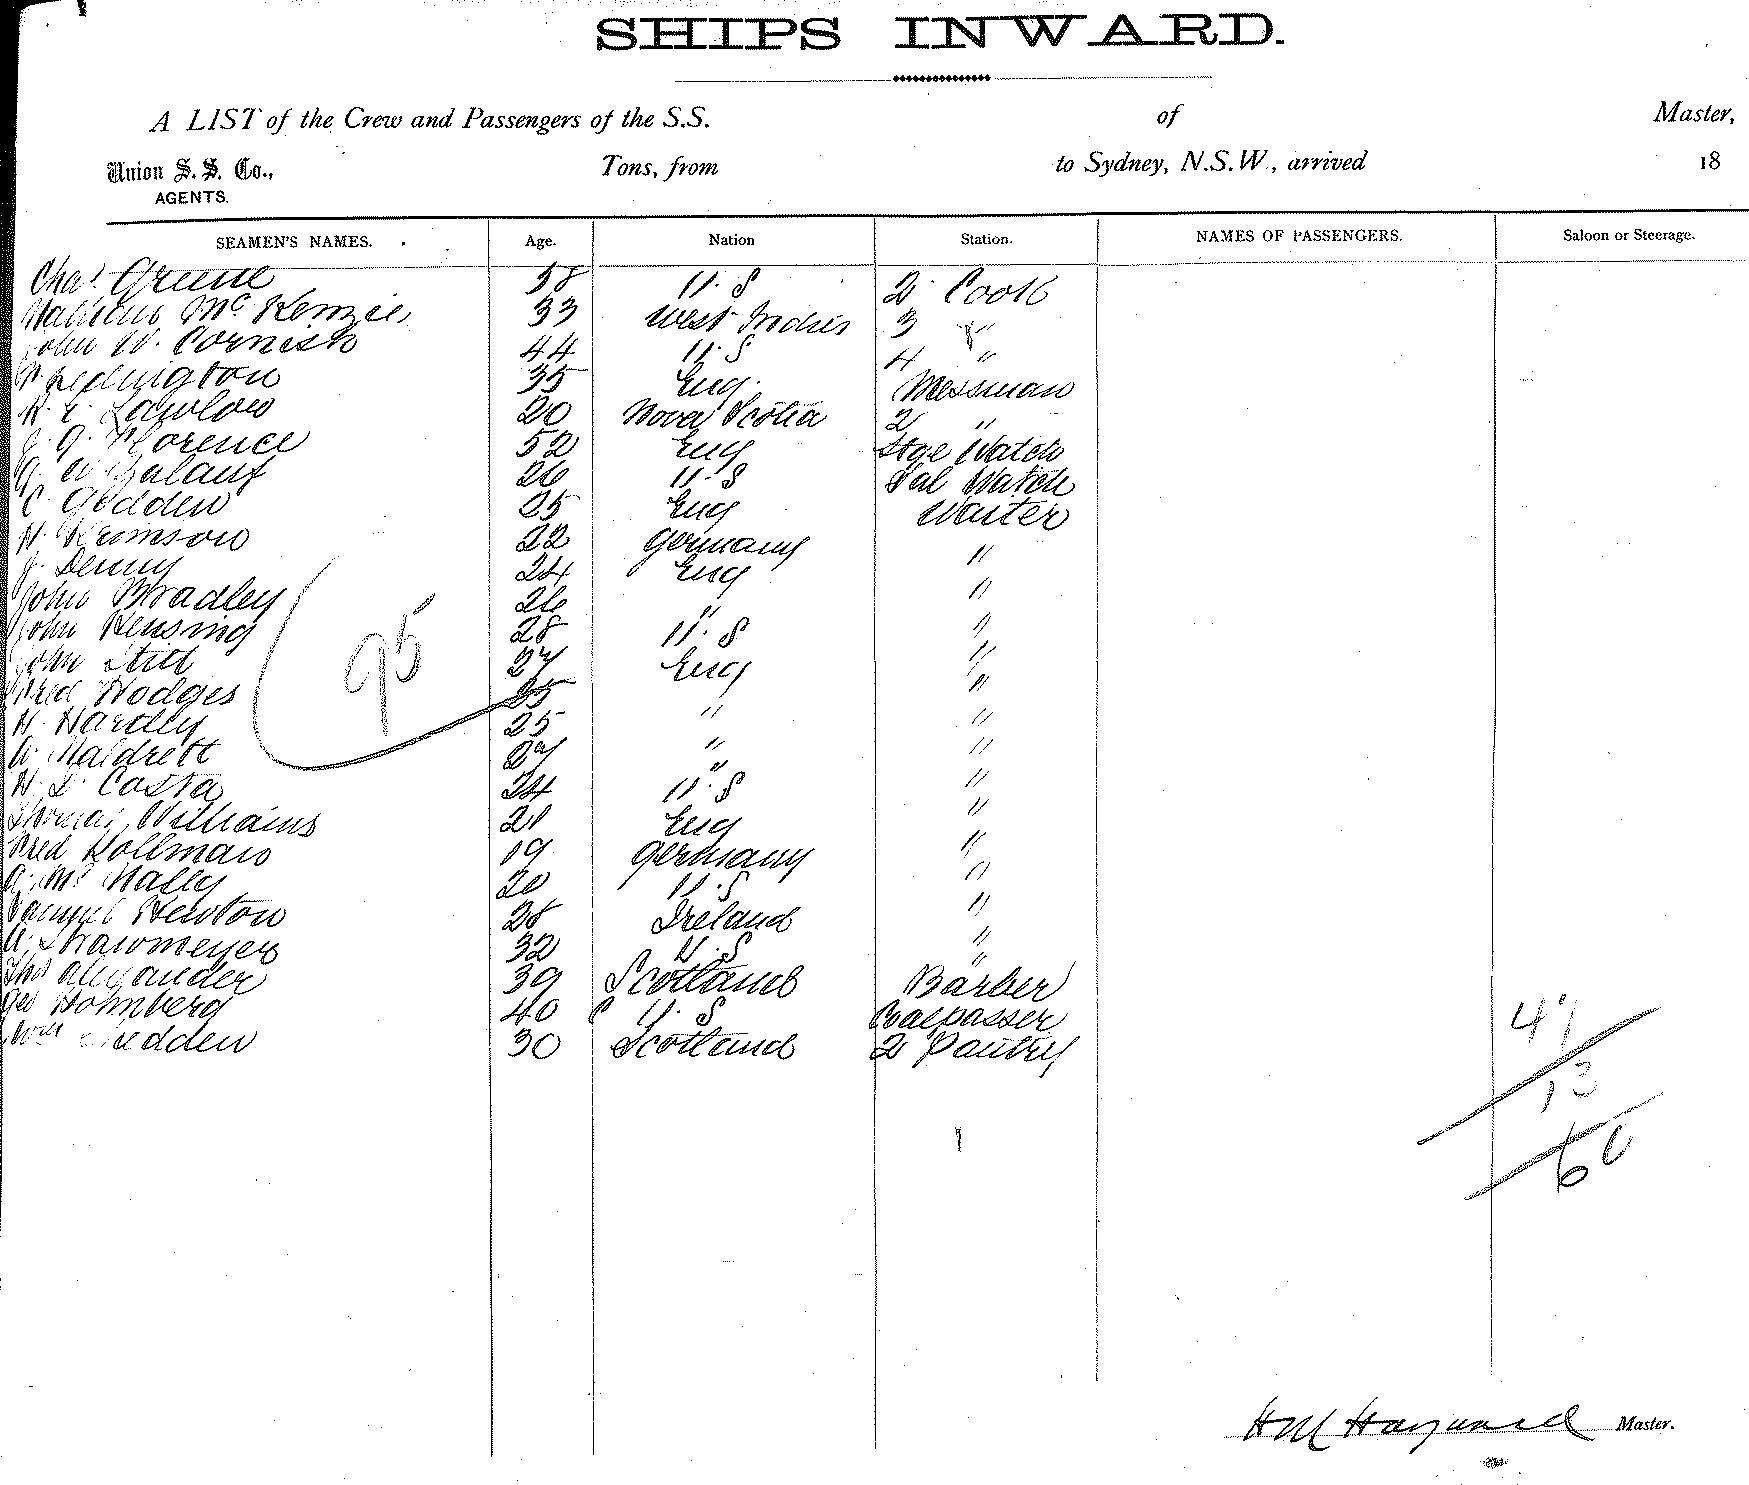 SHIPS INWARD.
A LIST of the Crew and Passengers of the S.S. of Master,
Union S. S. Co., Tons, from to Sydney, N.S.W., arrived 18
AGENTS.
SEAMEN'S NAMES. Age. Nation Station. NAMES OF PASSENGERS. Saloon or Steerage.
Chas. Greene 38 U.S 2 Cook
McKenzie 33 West Indies 3 "
John W. Cornish 44 U.S 4 "
35 Eng. Messman
20 Nova Scotia 2 "
J. J. Florence 52 Eng Stge Watch
26 U.S Sal Watch
C. Godden 25 Eng Waiter
22 Germany "
J. Denny 24 Eng "
John Bradley 26 " "
John Hensing 28 U.S "
John Still 27 Eng "
Fred Hodges 25 " "
H. Hardley 25 " "
Maldrett 27 " "
Costa 24 U.S "
Thomas Williams 21 Eng "
Fred Kollman 19 Germany "
A. McNally 20 U.S "
Samuel Newton 28 Ireland "
Strawmeyer 32 U.S "
Thos Alexander 39 Scotland Barber
Geo Holmberg 40 U.S
Wm 30 Scotland 2 Pantry
95
47
13
60
H M Hayward Master.